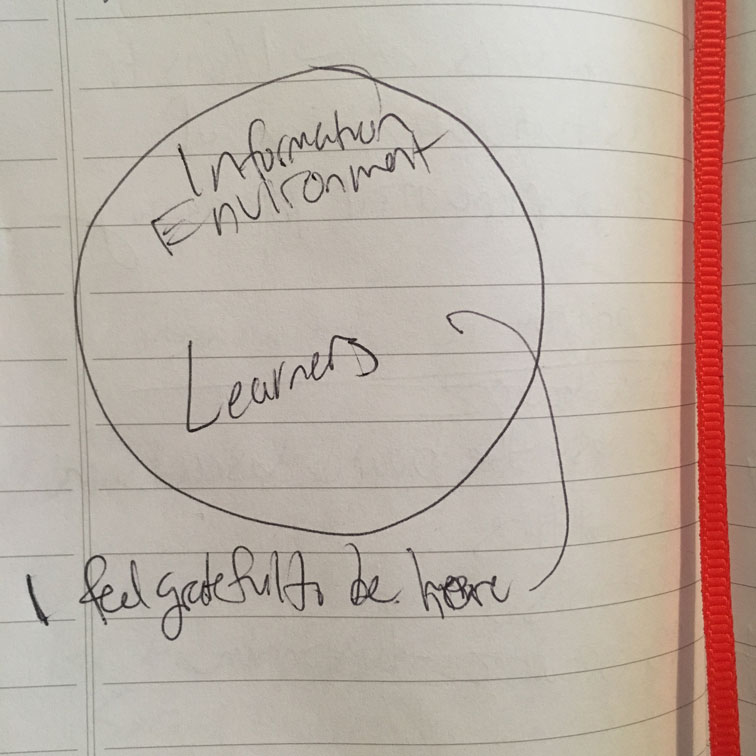 Information
Environment
Learners
I feel grateful to be here